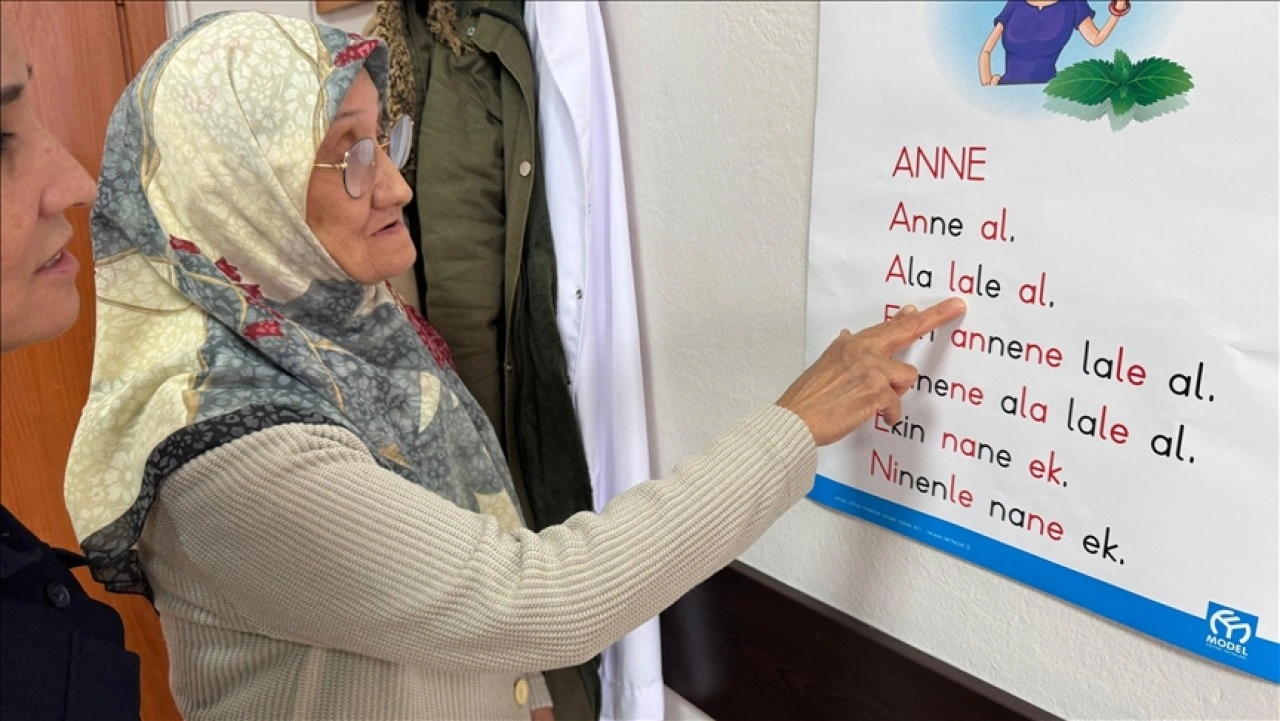 ANNE
Anne al.
Ala lale al.
annene lale al.
ala lale al.
Ekin nane ek.
Ninenle nane ek.
MODEL